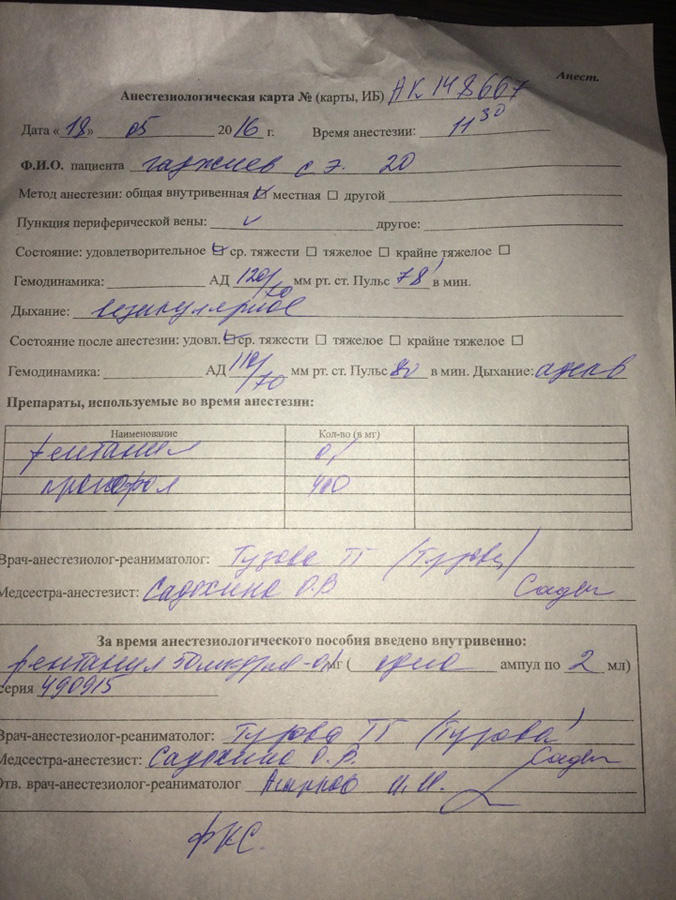 Анест.
Анестезиологическая карта № (карты, ИБ) АК 148667
Дата «18» 05 2016 г. Время анестезии: 11 30
Ф.И.О. пациента гаджиев с э. 20
Метод анестезии: общая внутривенная ☑ местная ☐ другой
Пункция периферической вены: ✓ другое:
Состояние: удовлетворительное ☑ ср. тяжести ☐ тяжелое ☐ крайне тяжелое ☐
Гемодинамика: АД 120/70 мм рт. ст. Пульс 78 в мин.
Дыхание: везикулярное
Состояние после анестезии: удовл. ☑ ср. тяжести ☐ тяжелое ☐ крайне тяжелое ☐
Гемодинамика: АД 110/70 мм рт. ст. Пульс 80 в мин. Дыхание: адекв
Препараты, используемые во время анестезии:
Наименование Кол-во (в мг)
фентанил 0,1
пропофол 400
Врач-анестезиолог-реаниматолог: Тузова ТГ (Тузова)
Медсестра-анестезист: Садохина О.В.
За время анестезиологического пособия введено внутривенно:
фентанил 50мкг/мл - 0,1 мг ( одна ампул по 2 мл)
серия 490915
Врач-анестезиолог-реаниматолог: Тузова ТГ (Тузова)
Медсестра-анестезист: Садохина О.В.
Отв. врач-анестезиолог-реаниматолог И.И.
ФКС.